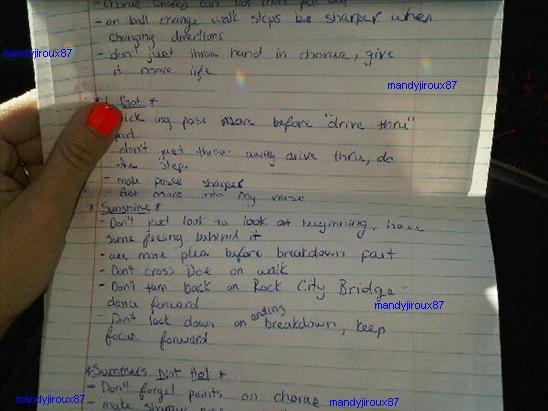 - on ball change walk steps be sharper when
changing directions
mandyjiroux87
- don't just throw hand in chorus, give
it more life
mandyjiroux87
pose more before "drive thru"
part.
- don't just throw away drive thru, do
the step.
- make poses sharper
more into my verse
* Sunshine *
- Don't just look to look at beginning, have
some feeling behind it
- use more plea before breakdown part
- Don't cross Dee on walk
- Don't turn back on Rock City Bridge -
dance forward
mandyjiroux87
- Don't look down on ending breakdown, keep
focus forward.
* Summers Not Hot *
- Don't forget points on chorus
- make sharper
mandyjiroux87
mandyjiroux87